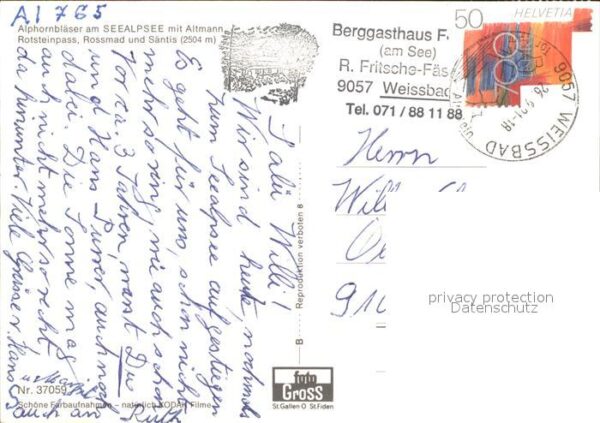 AI 765
Alphornbläser am SEEALPSEE mit Altmann,
Rotsteinpass, Rossmad und Säntis (2504 m)
Salü Willi!
Wir sind heute nochmals
zum Seealpsee aufgestiegen
Es geht für uns, schon nicht
mehr so ring, wie auch schon
vor ca. 3 Jahren, warst Du
und Hans Pürrer, auch noch
dabei. Die Sonne mag
auch nicht mehr so recht
da hinunter. Viele Grüsse v. Hans
Ruth
auch an
Nr. 37059
Schöne Farbaufnahmen – natürlich KODAK Filme
B
Reproduktion verboten B
foto
Gross
St.Gallen O St.Fiden
Berggasthaus F
(am See)
R. Fritsche-Fäs
9057 Weissbad
Tel. 071 / 88 11 88
50
HELVETIA
700
9057 WEISSBAD
Herrn
Will
91
privacy protection
Datenschutz